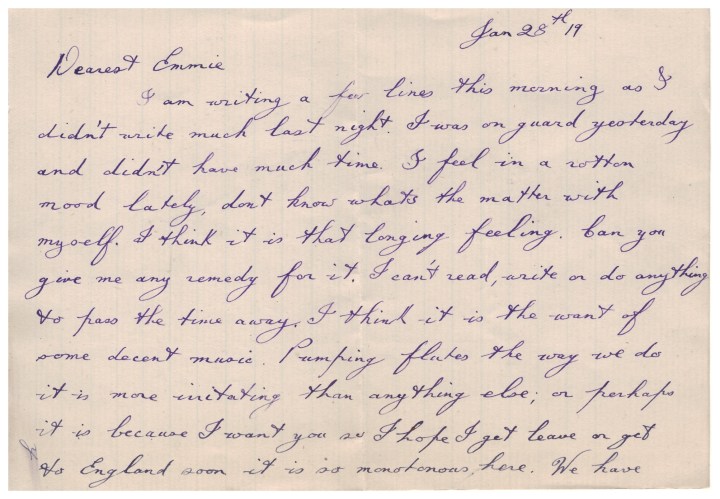 Jan 28th 19
Dearest Emmie
I am writing a few lines this morning as I
didn't write much last night. I was on guard yesterday
and didn't have much time. I feel in a rotton
mood lately, dont know what's the matter with
myself. I think it is that longing feeling. Can you
give me any remedy for it. I can't read, write or do anything
to pass the time away. I think it is the want of
some decent music. Pumping flutes the way we do
it is more irritating than anything else; or perhaps
it is because I want you so I hope I get leave or get
to England soon it is so monotonous, here. We have